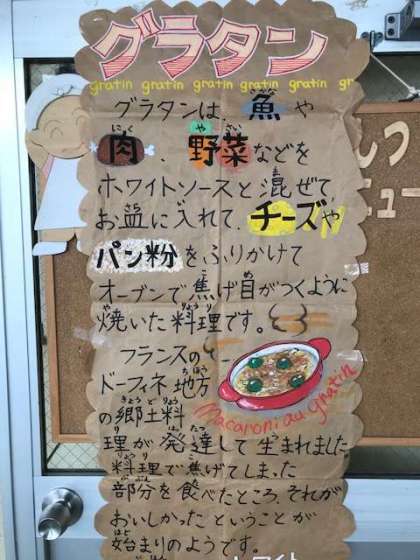 グラタン
gratin gratin gratin gratin gratin gr
グラタンは 魚や
肉、野菜などを
ホワイトソースと混ぜて
お皿に入れて、チーズや
パン粉をふりかけて
オーブンで焦げ目がつくように
焼いた料理です。
フランスの
ドーフィネ地方
の郷土料
理が発達して生まれました
料理で焦げてしまった
部分を食べたところ、それが
おいしかったということが
始まりのようです。
Macaroni au gratin
しつ
ュー